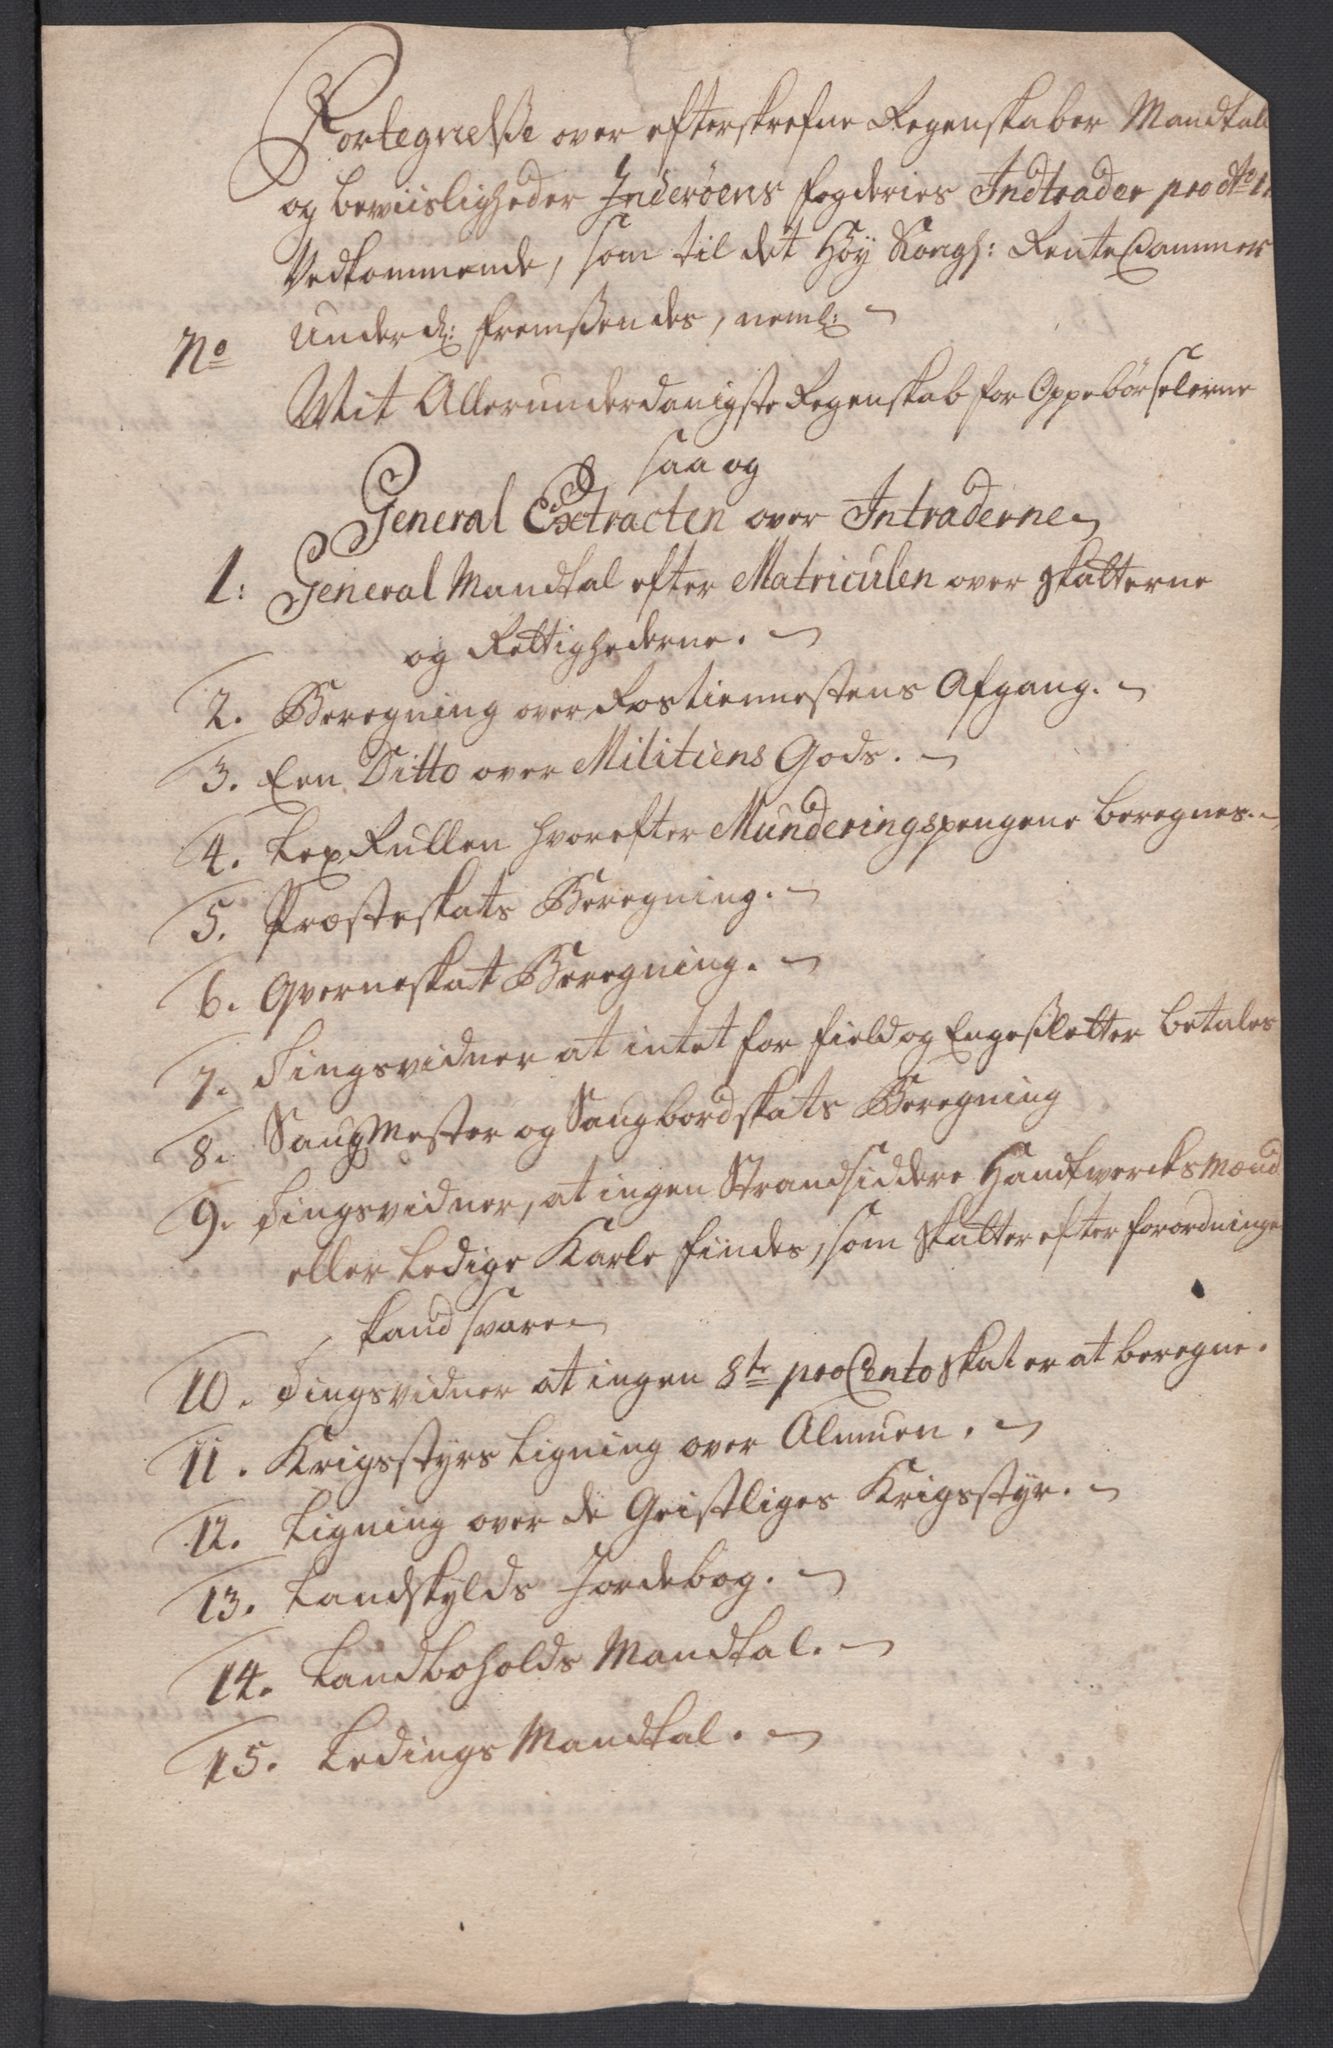 Fortegnelse over efterskrefne Regenskaber Mandtall
og beviisligheder Inderøens fogderies Indtrader pro Ao
Vedkommende, som til det Høy Kongl: Rente Cammer
Underd: fremsendes, neml:
No
Mit Allerunderdanigste Regenskab for Oppebørselerne
saa og
General Extracten over Intraderne
1: General Mandtal efter Matriculen over skatterne
og Rettighederne.
2. Beregning over Rostiennestens Afgang.
3. Een Ditto over Militiens Gods.
4. LexRullen hvorefter Munderingspengene beregnes.
5. Præsteskats Beregning.
6. Qverneskat Beregning.
7. Tingsvidner at intet for field og Engesletter betales
8. SaugMester og Saugbordskats Beregning
9. Tingsvidner, at ingen Strandsiddere HandtwercksMænd
eller ledige Karle findes, som skatter efter forordninge
kand svare
10. Tingsvidner at ingen 8te pro Cento skat er at beregne.
11. Krigsstyrs ligning over Almuen.
12. Ligning over de Geistliges Krigsstyr.
13. Landskylds Jordebog.
14. Landboholds Mandtal.
15. Ledings Mandtal.